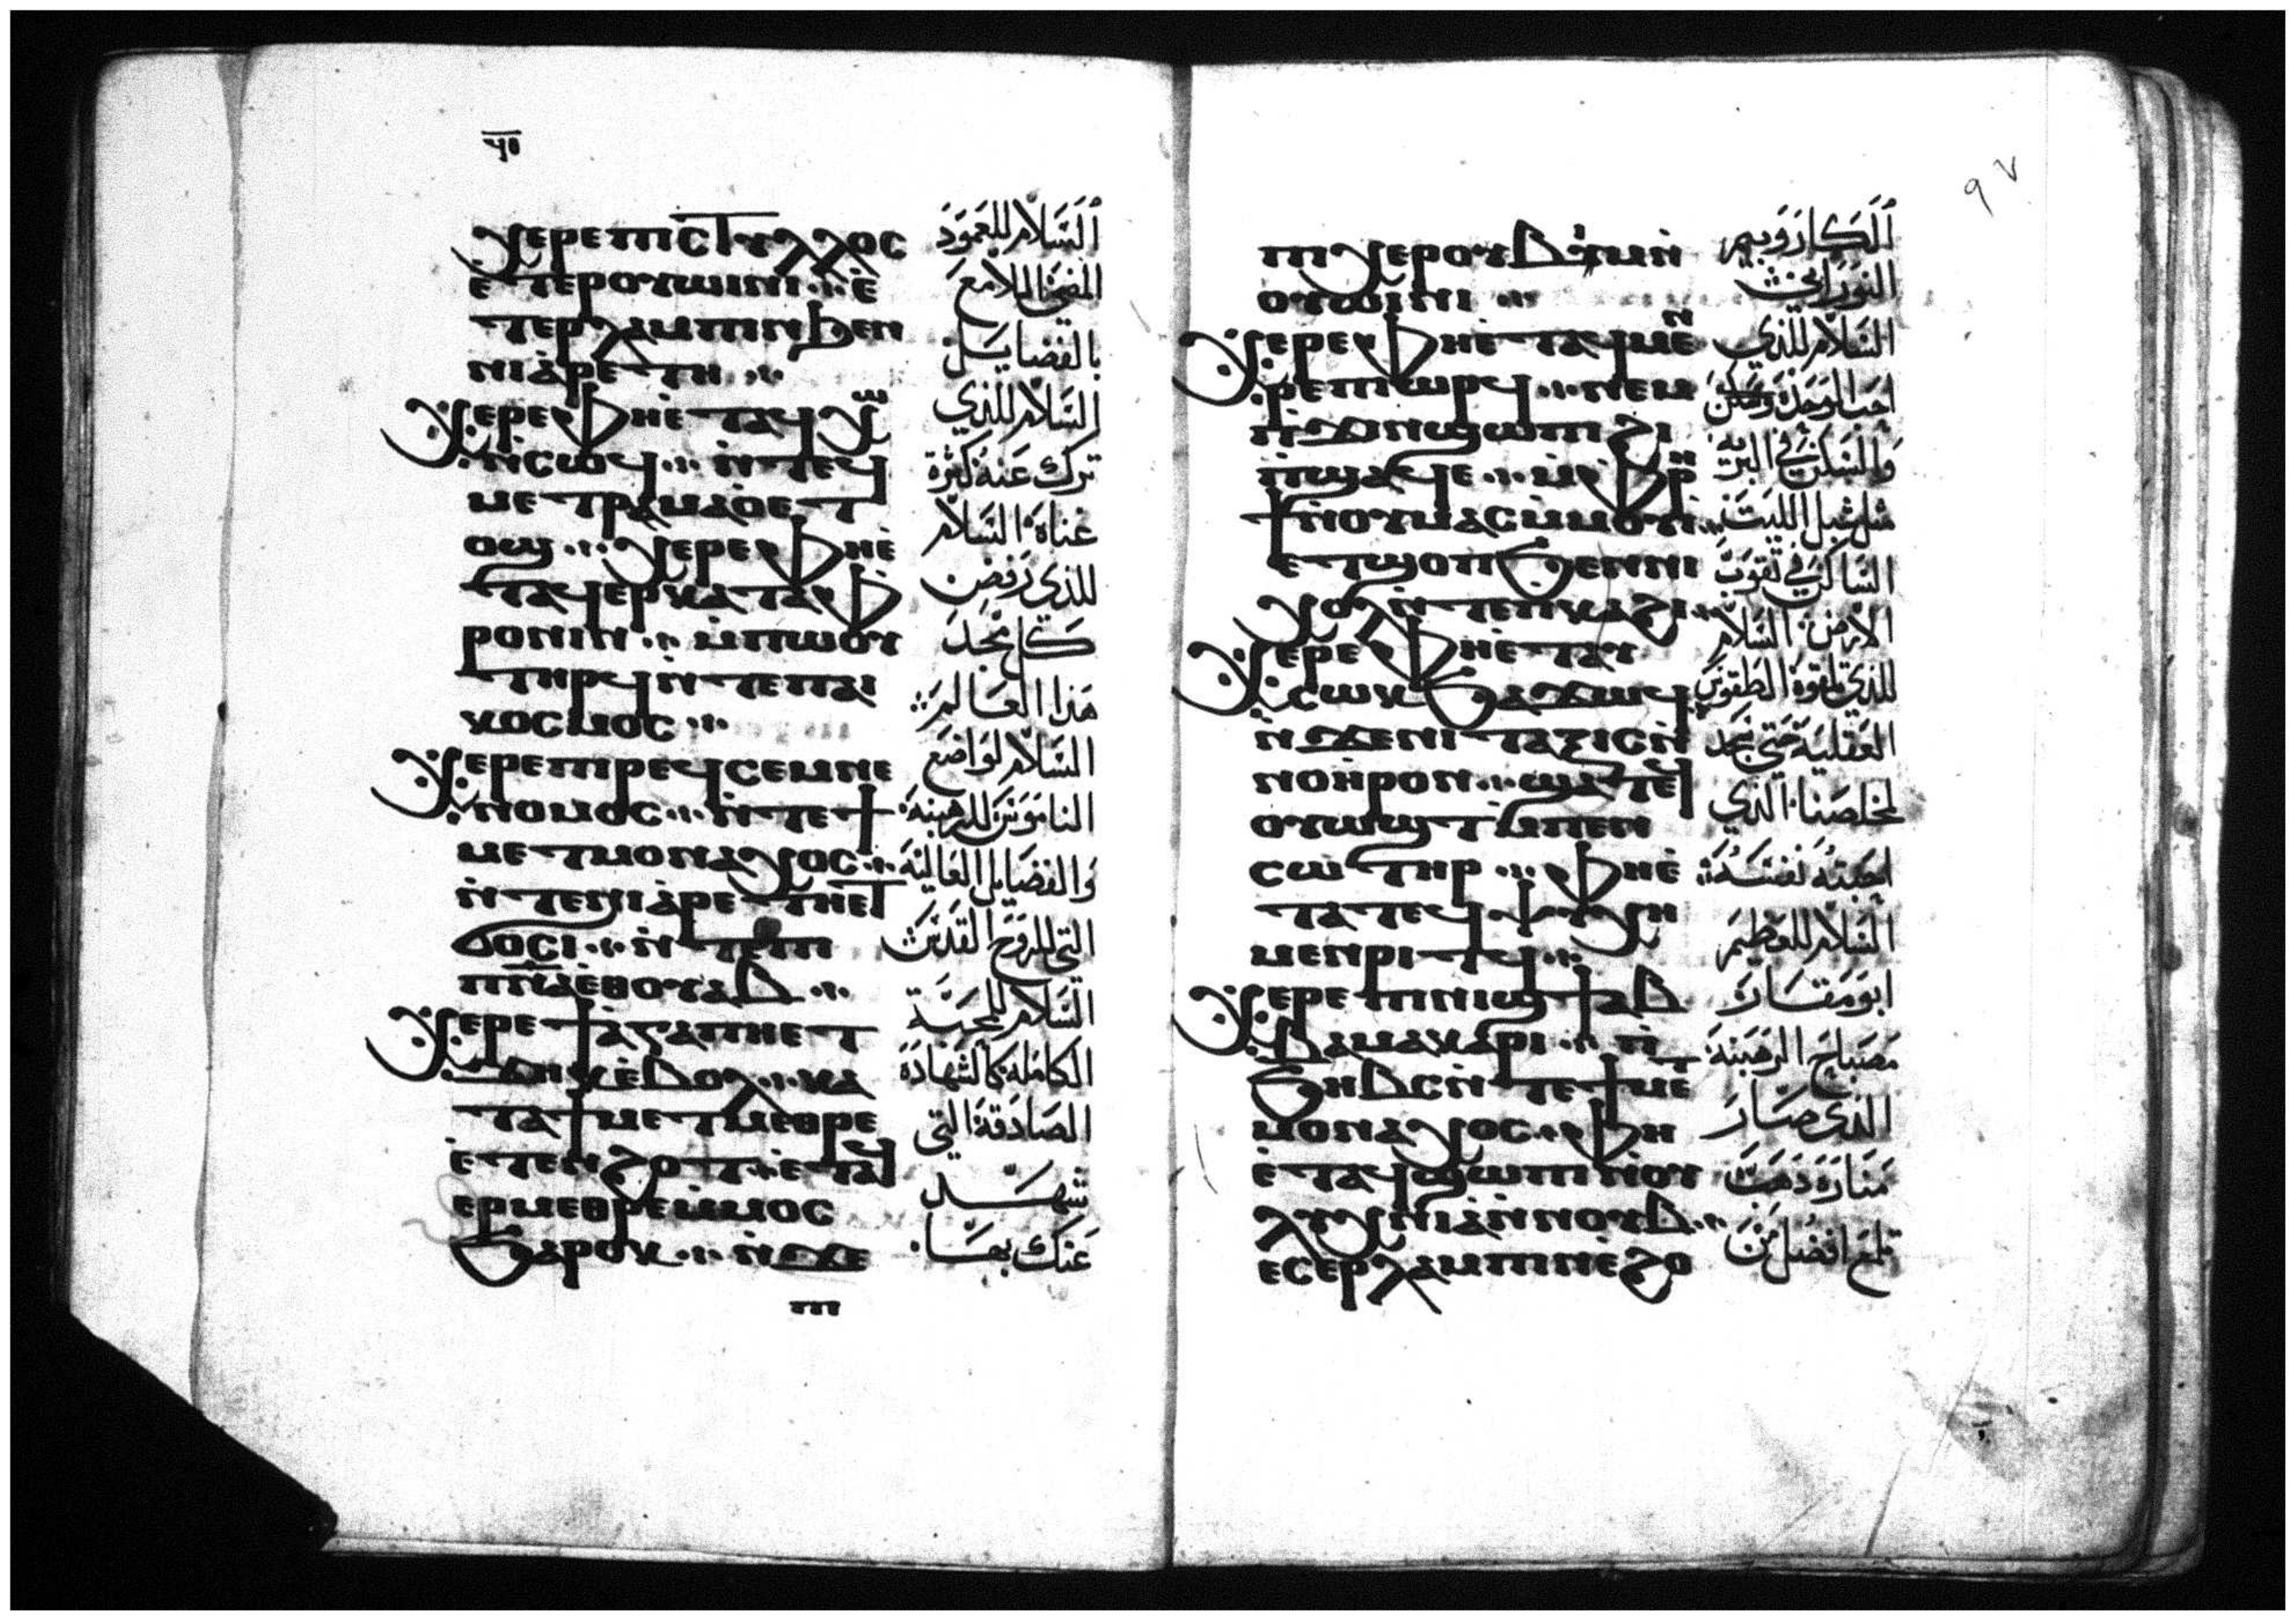 ϥⲑ
ⲭⲉⲣⲉ ⲡⲓⲥⲧⲩⲗⲗⲟⲥ
ⲉ̀ⲧⲉⲣⲟⲩⲱⲓⲛⲓ ⁘ ⲉ̀
ⲧⲉⲣⲗⲁⲙⲡⲓⲛ ϧⲉⲛ
ⲛⲓⲁ̀ⲣⲉⲧⲏ ⁘
ⲭⲉⲣⲉ ⲫⲏⲉ̀ⲧⲁϥⲭⲱ
ⲛ̀ⲥⲱϥ ⁘ ⲛ̀ⲧⲉϥ
ⲙⲉⲧⲣⲁⲙⲁⲟ̀ⲉⲧ
ⲟϣ ⁘ ⲭⲉⲣⲉ ⲫⲏⲉ̀
ⲧⲁϥⲉⲣⲕⲁⲧⲁⲫ
ⲣⲟⲛⲓⲛ ⁘ ⲙ̀ⲡⲱⲟⲩ
ⲧⲏⲣϥ ⲛ̀ⲧⲉ ⲡⲁⲓ
ⲕⲟⲥⲙⲟⲥ ⁘
ⲭⲉⲣⲉ ⲡⲓⲣⲉϥⲥⲉⲙⲛⲉ
ⲛⲟⲙⲟⲥ ⁘ ⲛ̀ⲧⲉ ϯ
ⲙⲉⲧⲙⲟⲛⲁⲭⲟⲥ ⁘
ⲛ̀ⲧⲉ ⲛⲓⲁ̀ⲣⲉⲧⲏ ⲉⲧ
ϭⲟⲥⲓ ⁘ ⲛ̀ⲧⲉ ⲡⲓ
ⲡ̅ⲛ̅ⲁ̅ ⲉ̀ⲑⲟⲩⲁⲃ ⁘
ⲭⲉⲣⲉ ϯⲁ̀ⲅⲁⲡⲏ ⲉⲧ
ϫⲏⲕ ⲉ̀ⲃⲟⲗ ⁘ ⲕⲁ
ⲧⲁ ϯⲙⲉⲧⲙⲉⲑⲣⲉ
ⲉ̀ⲧⲉⲛϩⲟⲧ ⲉ̀ⲧⲁϥ
ⲉⲣⲙⲉⲑⲣⲉ ⲙ̀ⲙⲟⲥ
ϧⲁⲣⲟⲕ ⁘ ⲛ̀ϫⲉ
ⲡⲓ
السلام للعمود
المضئ اللامع
بالفضايل
السلام للذي
ترك عنه كثرة
غناه السلام
للذي رفض
كل مجد
هذا العالم
السلام لواضع
الناموس للرهبنة
والفضايل العالية
التي للروح القدس
السلام للمحبة
الكاملة كالشهادة
الصادقة التي
شهد
عنك بها
٩٧
ⲡⲓⲭⲉⲣⲟⲩⲃⲓⲙ ⲛ̀
ⲟⲩⲱⲓⲛⲓ ⁘
ⲭⲉⲣⲉ ⲫⲏⲉ̀ⲧⲁϥⲙⲉⲛ
ⲣⲉ ⲡⲓⲱⲣϥ ⁘ ⲛⲉⲙ
ⲡ̀ϫⲓⲛϣⲱⲡⲓ ϩⲓ
ⲡ̀ϣⲁϥⲉ ⁘ ⲙ̀ⲫⲣⲏ
ϯ ⲛ̀ⲟⲩⲙⲁⲥ ⲙ̀ⲙⲟⲩⲓ ⁘
ⲉⲧϣⲟⲡ ϧⲉⲛ ⲛⲓ
ⲭⲟⲗ ⲛ̀ⲧⲉ ⲡⲕⲁϩⲓ ⁘
ⲭⲉⲣⲉ ⲫⲏⲉ̀ⲧⲁⲩ
ⲥⲱⲕ ϧⲁϫⲱϥ
ⲛ̀ϫⲉ ⲛⲓⲧⲁⲝⲓⲥ ⲛ̀
ⲛⲟⲏ̀ⲣⲟⲛ ⁘ ϣⲁⲧⲉϥ
ⲟⲩⲱϣⲧ ⲙ̀ⲡⲉⲛ
ⲥⲱⲧⲏⲣ ⁘ ⲫⲏⲉ̀
ⲧⲁ ⲧⲉϥⲯⲩⲭⲏ
ⲙⲉⲛⲣⲓⲧϥ ⁘
ⲭⲉⲣⲉ ⲡⲓⲛⲓϣϯ ⲁⲃ
ⲃⲁ ⲙⲁⲕⲁⲣⲓ ⁘ ⲡⲓ
ϧⲏⲃⲥ ⲛ̀ⲧⲉ ϯⲙⲉⲧ
ⲙⲟⲛⲁⲭⲟⲥ ⁘ ⲫⲏ
ⲉ̀ⲧⲁϥϣⲱⲡⲓ ⲛ̀ⲟⲩ
ⲗⲩⲭⲛⲓⲁ̀ ⲛ̀ⲛⲟⲩⲃ ⁘
ⲉⲥⲉⲣⲗⲁⲙⲡⲓⲛ ⲉ̀ϩⲟ
الكاروبيم
النوراني
السلام للذي
احب الوحدة
والسكن في البرية
مثل شبل الليث
الساكن في ثقوب
الارض السلام
للذي الطقوس
العقلية حتى سجد
لمخلصنا الذي
احبته نفسه
السلام للعظيم
ابو مقار
مصباح الرهبنة
الذي صار
منارة ذهب
تلمع افضل من